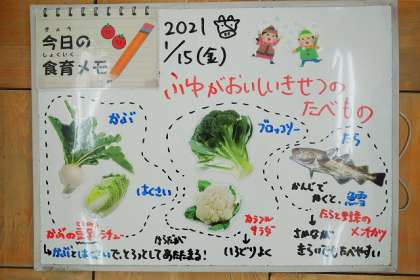 きょう
今日の
しょくいく
食育メモ
2021
1/15(金)
ふゆがおいしいきせつの
たべもの
かぶ
はくさい
ブロッコリー
カラフル
サラダ
いろどりよく
たら
かんじで
かくと、鱈
たらと野菜の
メンチカツ
さかなが
きらいでもたべやすい
かぶの豆乳シチュー
↳かぶとはくさいで、とろっとしてあたたまる!
からだが